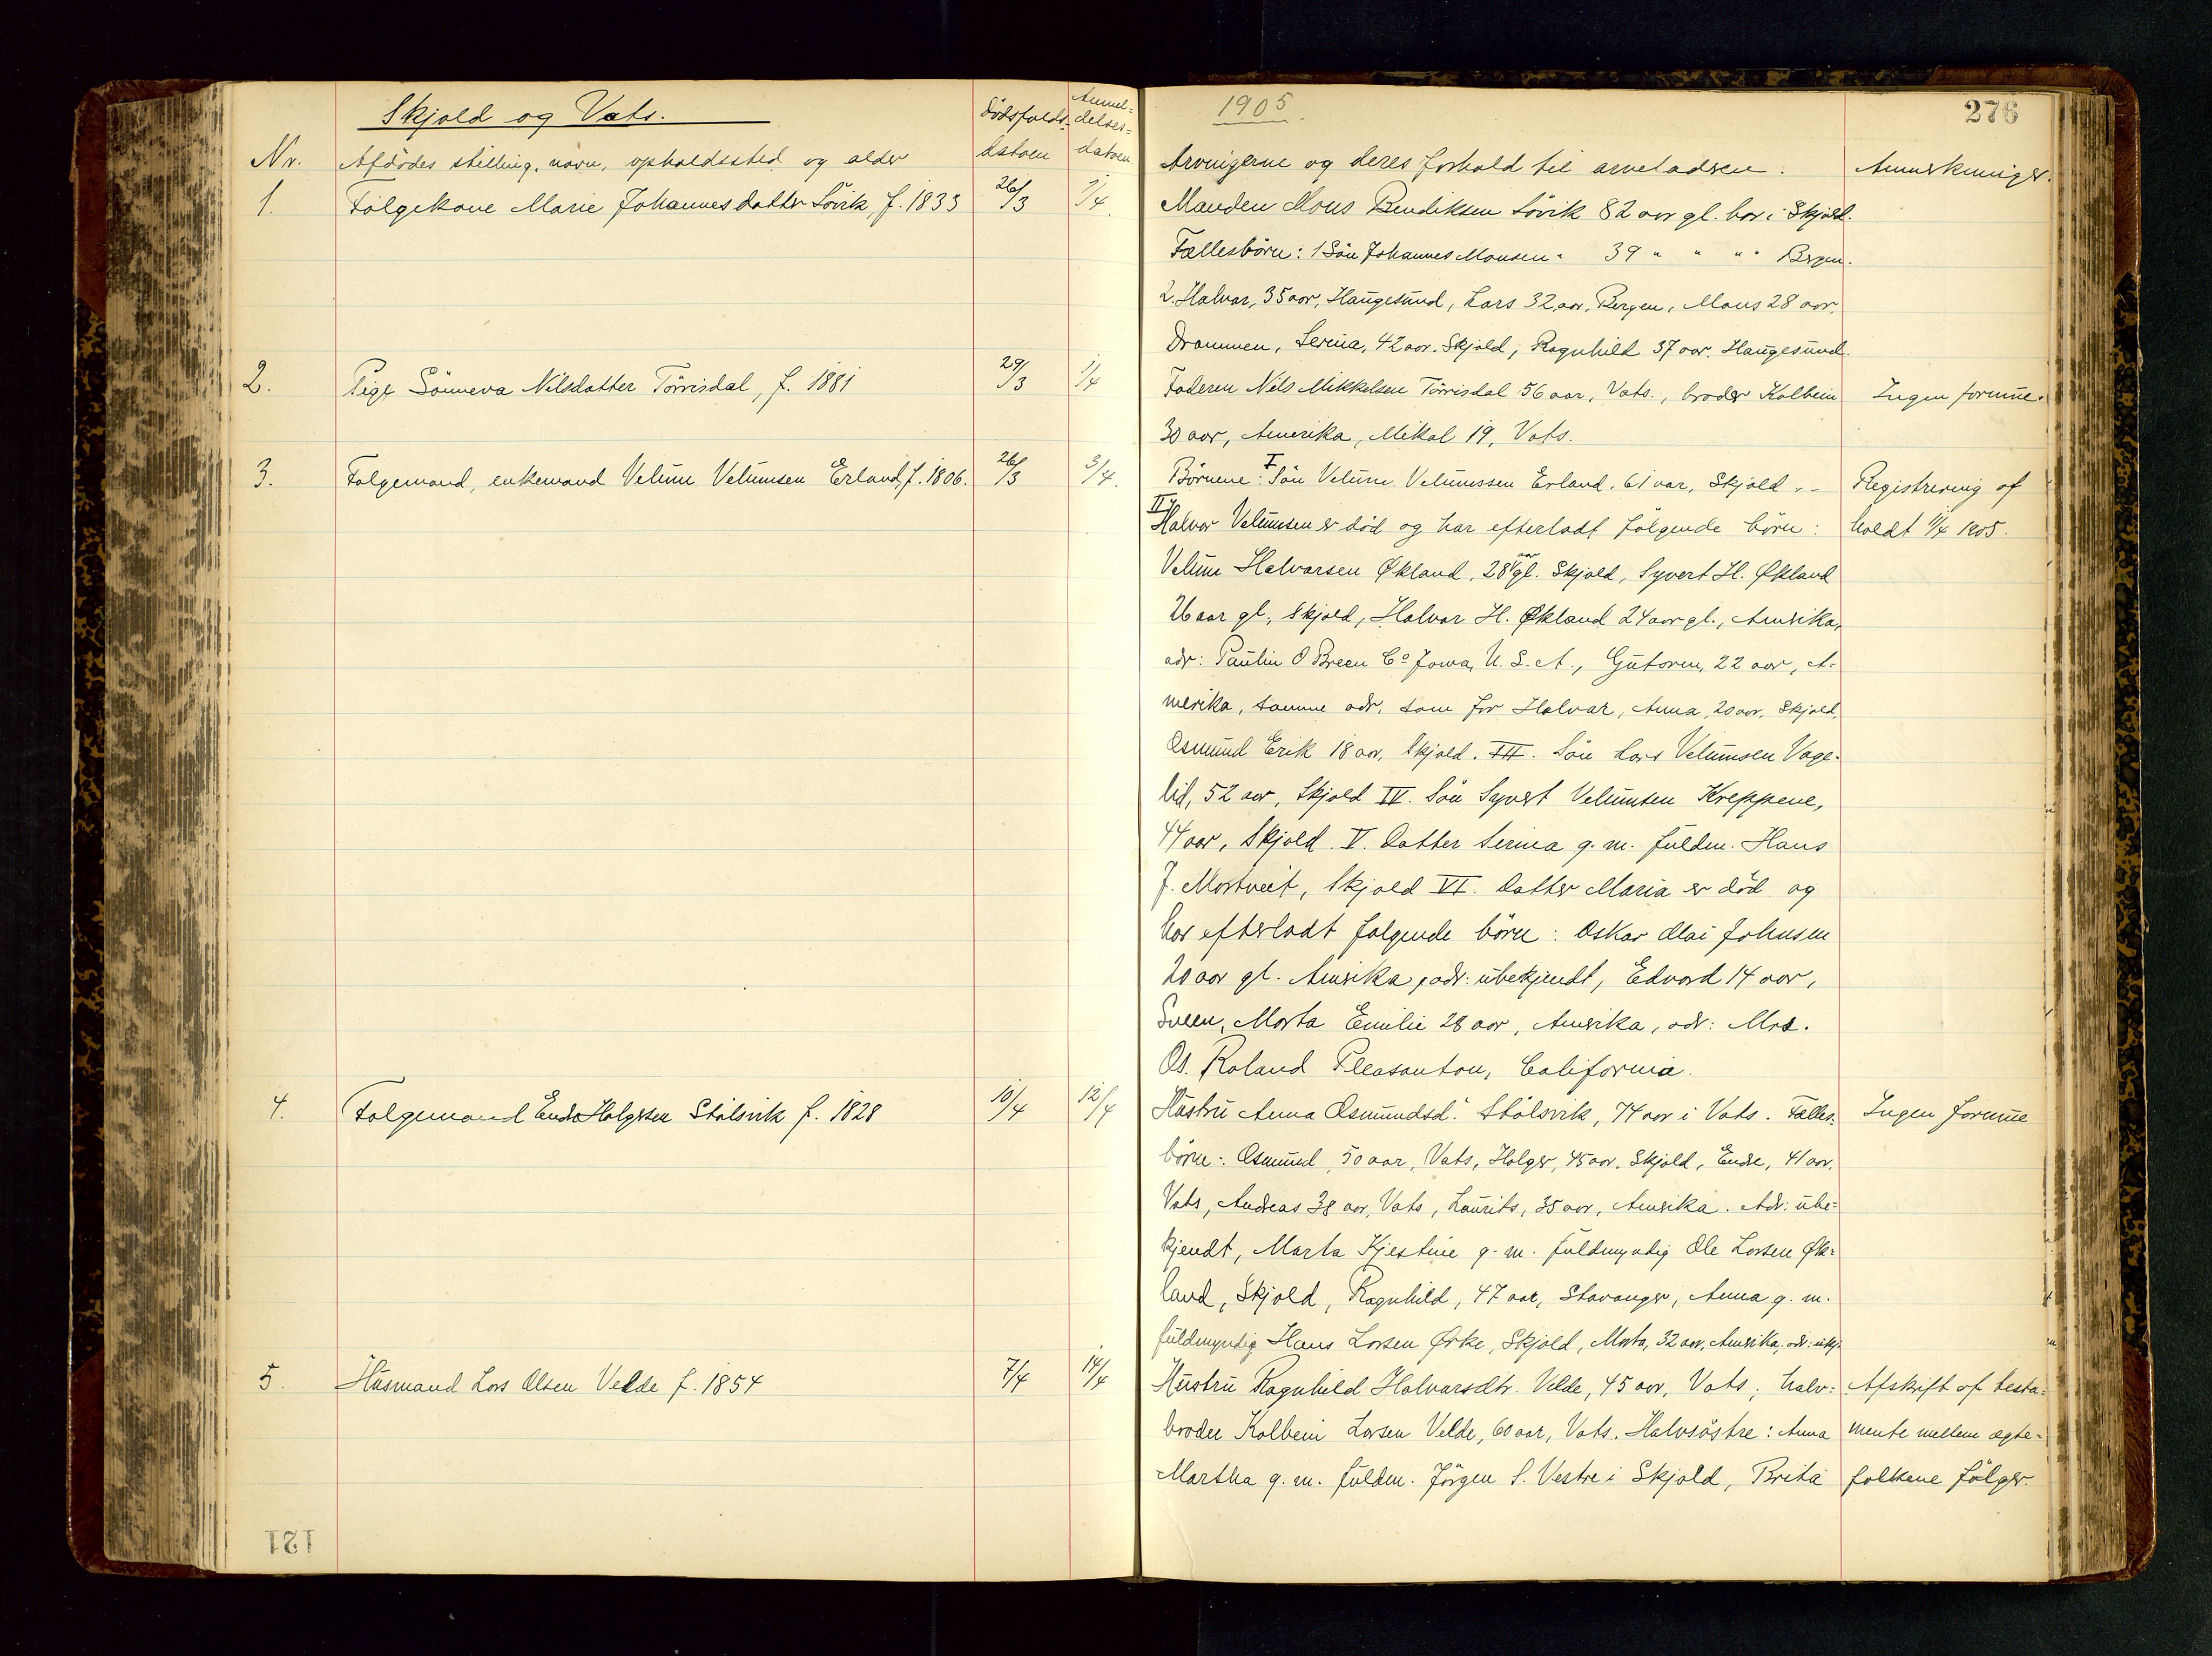 Skjold og Vats.
Nr. Afdødes stilling, navn, opholdssted og alder
Dødsfalds-datoen
Anmel=delses=datoen.
1. Folgekone Marie Johannesdatter Søvik f. 1833 26/3 1/4.
2. Pige Sønneva Nilsdatter Tørrisdal, f. 1881 29/3 1/4
3. Folgemand, enkemand Velum Velumsen Erland, f. 1806. 26/3 3/4.
4. Folgemand Endre Holgersen Stølsvik f. 1828 10/4 12/4
5. Husmand Lars Olsen Velde f. 1854 7/4 14/4
121
1905.
276
Arvingerne og deres forhold til arveladeren. Anmerkninger.
Manden Mons Bendiksen Søvik 82 aar gl. bor i Skjold.
Fællesbørn: 1 Søn Johannes Monsen " 39 " " " " Bergen.
2. Halvar, 35 aar, Haugesund, Lars 32 aar, Bergen, Mons 28 aar,
Drammen, Serina, 42 aar. Skjold, Ragnhild 37 aar. Haugesund.
Faderen Nils Mikkelsen Tørrisdal 56 aar, Vats., broder Kolbein Ingen formue.
30 aar, Amerika, Mikal 19, Vats.
Børnene: I Søn Velum Velumssen Erland, 61 aar, Skjold. – Registrering af
II Halvor Velumsen er død og har efterladt følgende børn: holdt 11/4 1905.
Velum Halvorsen Økland, 28 aar gl. Skjold, Syvert H. Økland
26 aar gl., Skjold, Halvor H. Økland 24 aar gl., Amerika,
adr: Paulin O Breen Co Jowa, U. S. A., Gutorm, 22 aar, A-
merika, samme adr. som for Halvar, Anna, 20 aar, Skjold,
Osmund Erik 18 aar, Skjold. III. Søn Lars Velumsen Vage-
lid, 52 aar, Skjold IV. Søn Syvert Velumsen Kreppene,
44 aar, Skjold. V. Datter Serina g. m. fuldm. Hans
J. Mortveit, Skjold VI. Datter Maria er død og
har efterladt følgende børn: Oskar Olai Johnsen
20 aar gl. Amerika, adr: ubekjendt, Edvard 14 aar,
Sveen, Marta Emilie 28 aar, Amerika, adr: Mrs.
Os. Roland Pleasanton, California.
Hustru Anna Osmundsd. Stølsvik, 74 aar i Vats. Fælles- Ingen formue
børn: Osmund, 50 aar, Vats, Holger, 45 aar, Skjold, Endre, 41 aar,
Vats, Andreas 38 aar, Vats, Laurits, 35 aar, Amerika. Adr: ube=
kjendt, Marta Kjestine g. m. fuldmyndig Ole Larsen Øk=
land, Skjold, Ragnhild, 47 aar, Stavanger, Anna g. m.
fuldmyndig Hans Larsen Ørke, Skjold, Marta, 32 aar, Amerika, adr: ubkj.
Hustru Ragnhild Halvarsdtr. Velde, 45 aar, Vats, halv= Afskrift af testa=
broder Kolbein Larsen Velde, 60 aar, Vats. Halvsøstre: Anna mente mellem ægte=
Martha g. m. fuldm. Jørgen S. Vestre i Skjold, Brita folkene følger.